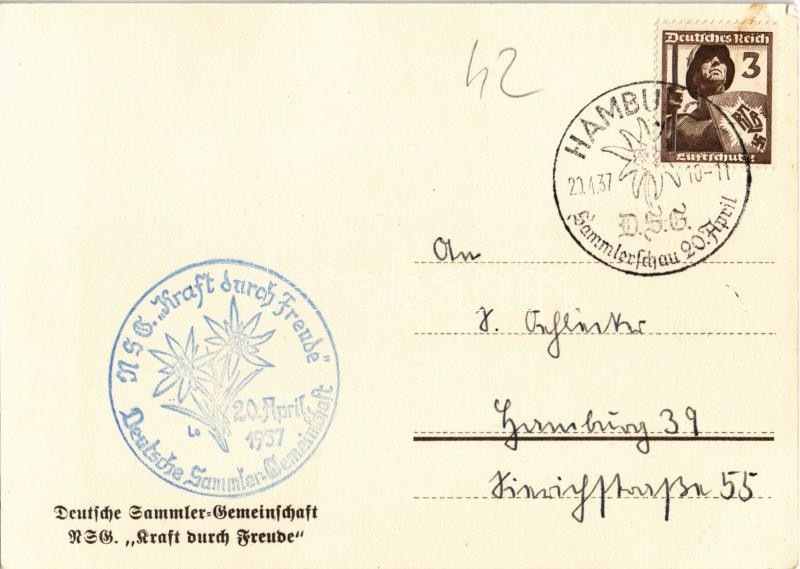 42
Deutsches Reich
3
RLB
Luftschutz
HAMBURG
20.4.37 10-11
D.S.G.
Sammlerschau 20. April
NSG. „Kraft durch Freude"
20. April
1937
Deutsche Sammler-Gemeinschaft
An
Hamburg 39
Sierichstraße 55
Deutsche Sammler-Gemeinschaft
NSG. „Kraft durch Freude"